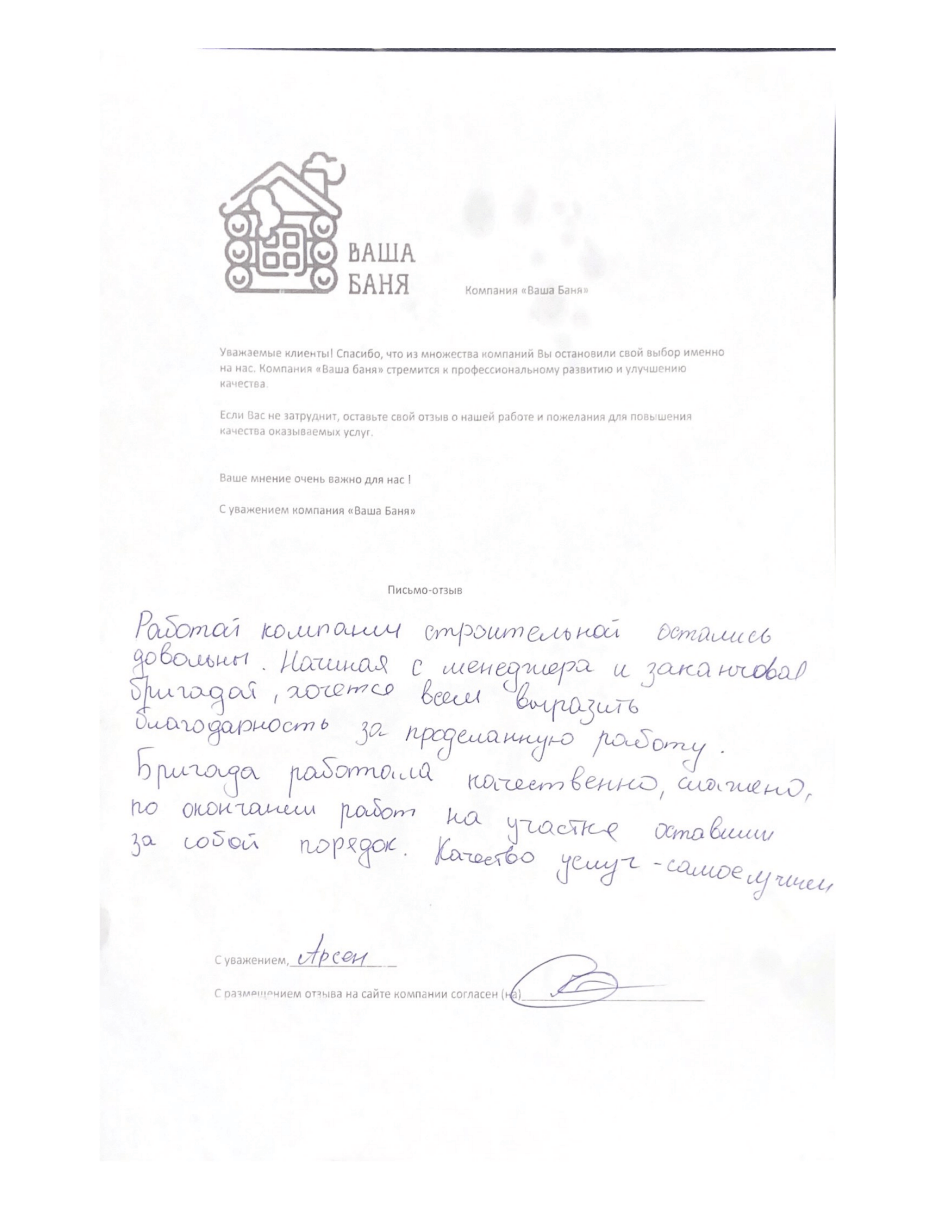 ВАША
БАНЯ
Компания «Ваша Баня»
Уважаемые клиенты! Спасибо, что из множества компаний Вы остановили свой выбор именно
на нас. Компания «Ваша баня» стремится к профессиональному развитию и улучшению
качества.
Если Вас не затруднит, оставьте свой отзыв о нашей работе и пожелания для повышения
качества оказываемых услуг.
Ваше мнение очень важно для нас !
С уважением компания «Ваша Баня»
Письмо-отзыв
Работой компании строительной остались
довольны. Начиная с менеджера и заканчивая
бригадой, хочется всем выразить
благодарность за проделанную работу.
Бригада работала качественно, слажено,
по окончании работ на участке оставили
за собой порядок. Качество услуг - самое лучшее
С уважением, Арсен
С размещением отзыва на сайте компании согласен (на)